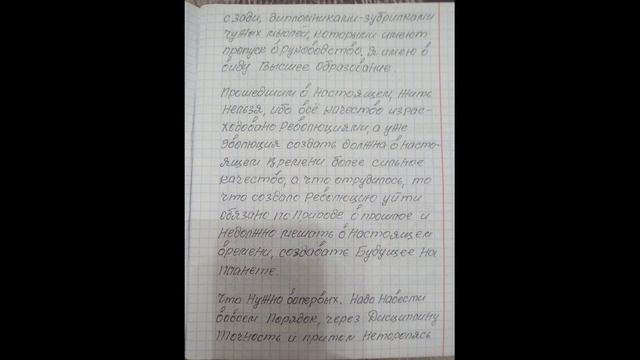 сзади, дипломниками-зубрилками
чужых мыслей, которыми имеют
пропуск в Руководство. Я имею в
виду Высшее Образование.
Прошедшим в настоящем, жить
нельзя, ибо всё качество израс-
ходовано Революциями, а уже
Эволюция создать должна в насто-
ящем Времени более сильное
качество, а что отрудилось, то
что создало Революцию уйти
обязано по Природе в прошлое и
недолжно мешать в настоящем
времени, создавать Будущее на
Планете.
Что Нужно вопервых. Надо Навести
вовсем Порядок, через Дисциплину
Точность и притом Неторопясь